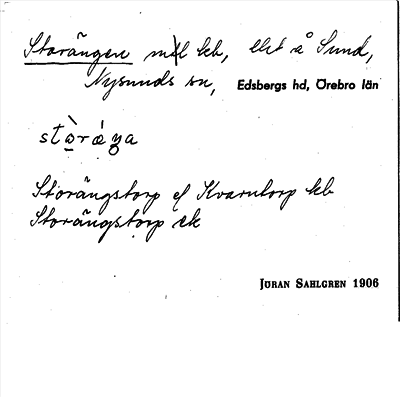 Storängen mtl leb, ebt å Sund,
Nysunds sn, Edsbergs hd, Örebro län
stò̱ràŋa
Storängstorp ef Kvarntorp leb
Storängstorp ek
JÖRAN SAHLGREN 1906